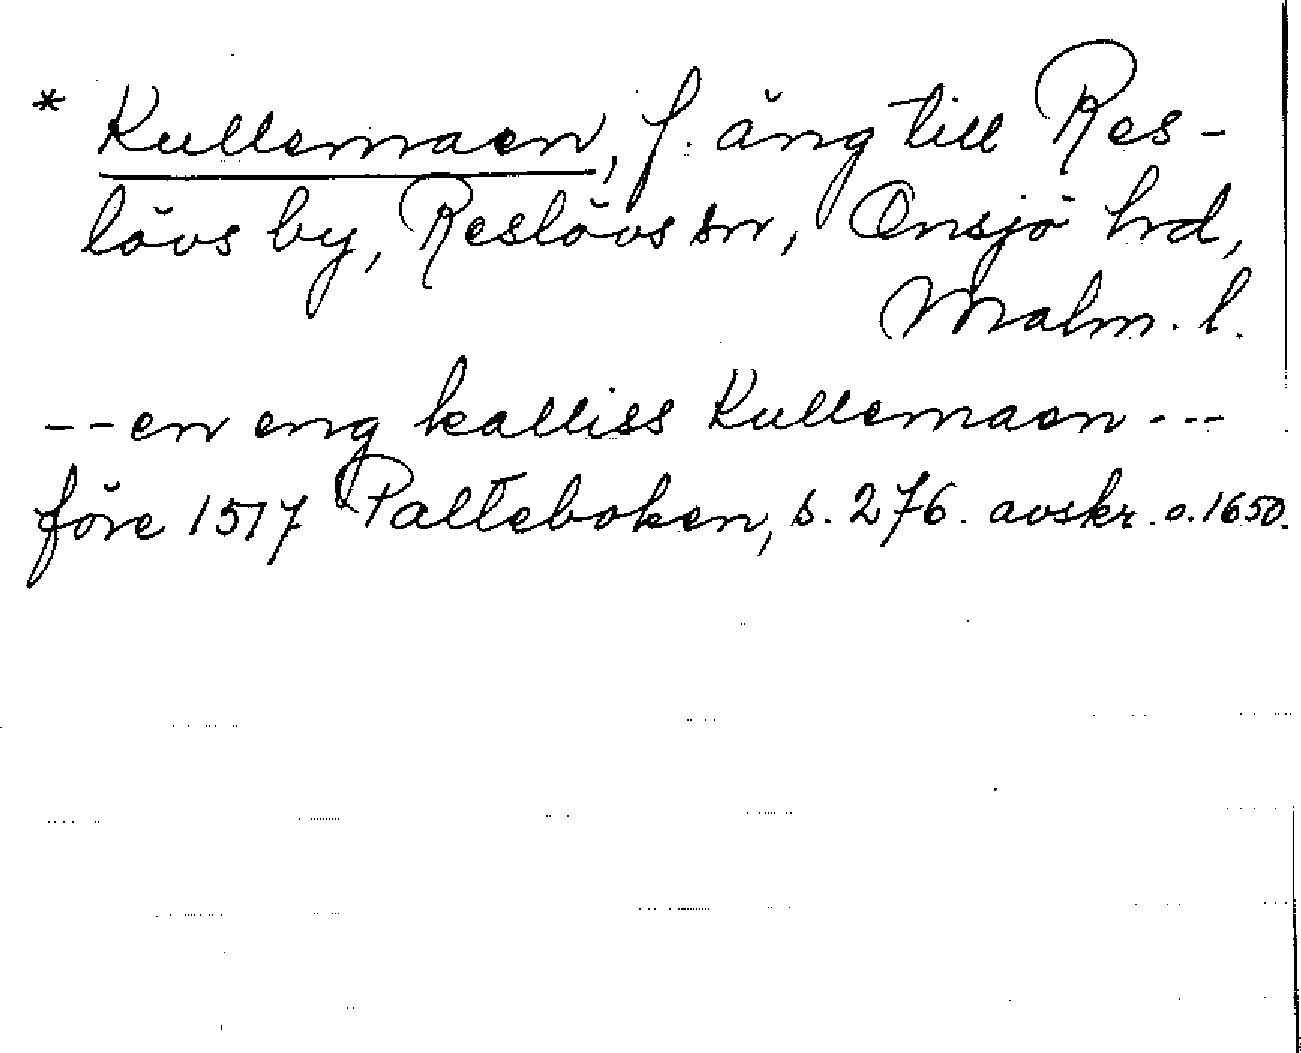 * Kullemaen, f. äng till Res-
lövs by, Reslövs sn, Onsjö hrd,
Malm. l.
-- en eng kalliss Kullemaen ---
före 1517 Palteboken, s. 276. avskr. o. 1650.